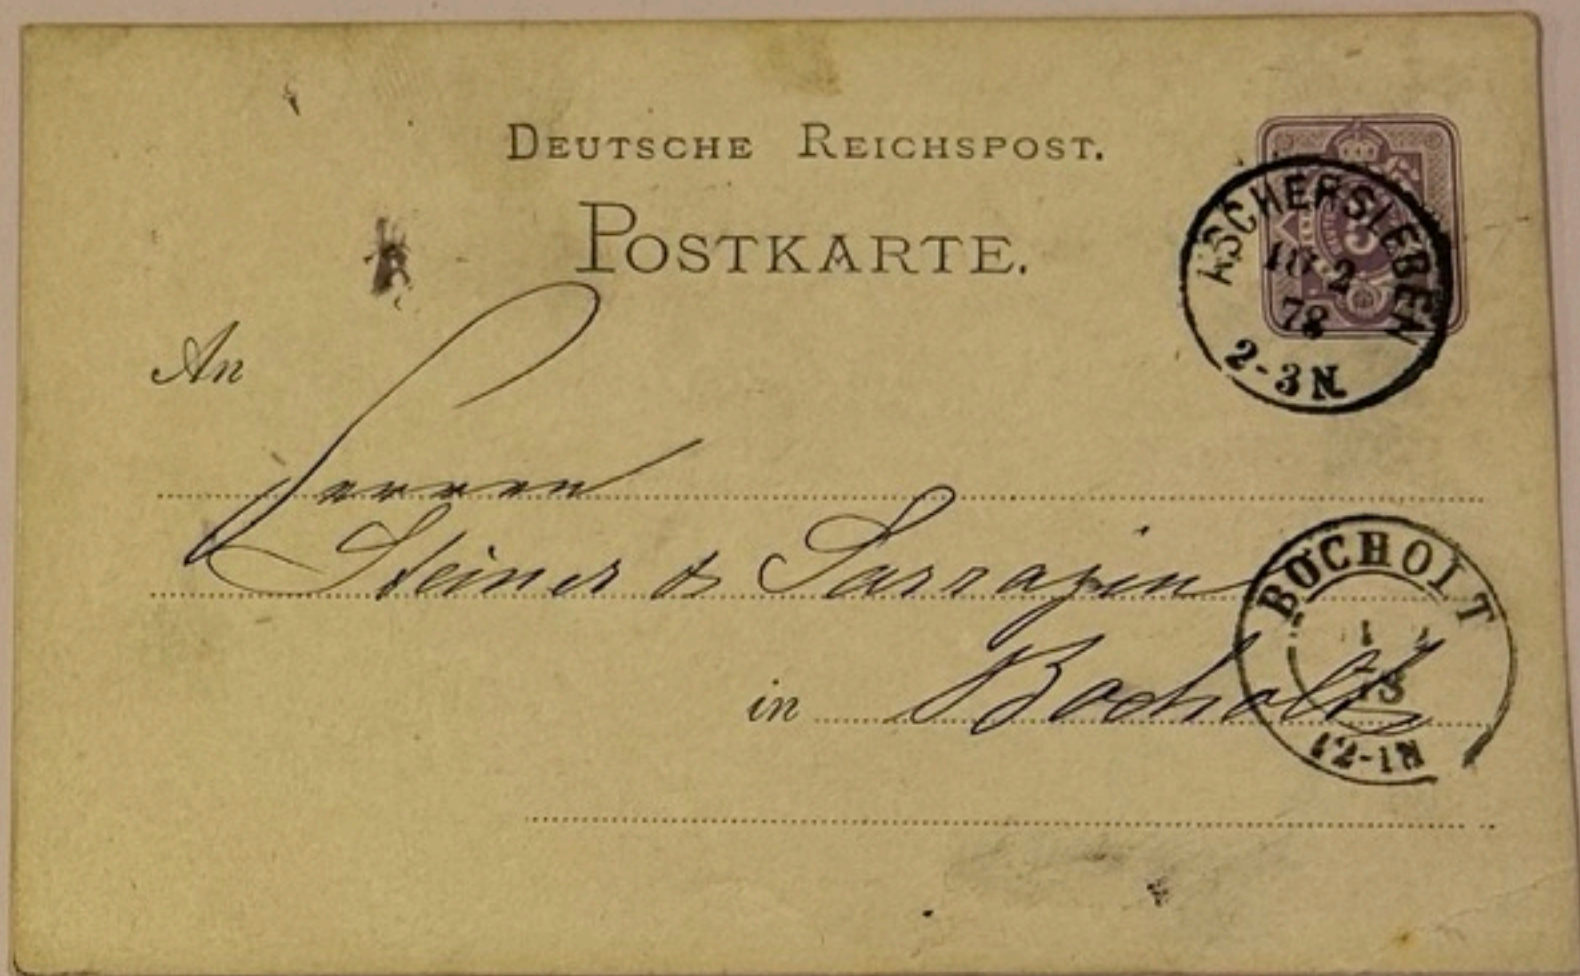 DEUTSCHE REICHSPOST.
POSTKARTE.
5
ASCHERSLEBEN
10 2
78
2-3N.
An
Herren
Steiner & Sarrazin
in Bocholt
BOCHOLT
78
12-1N